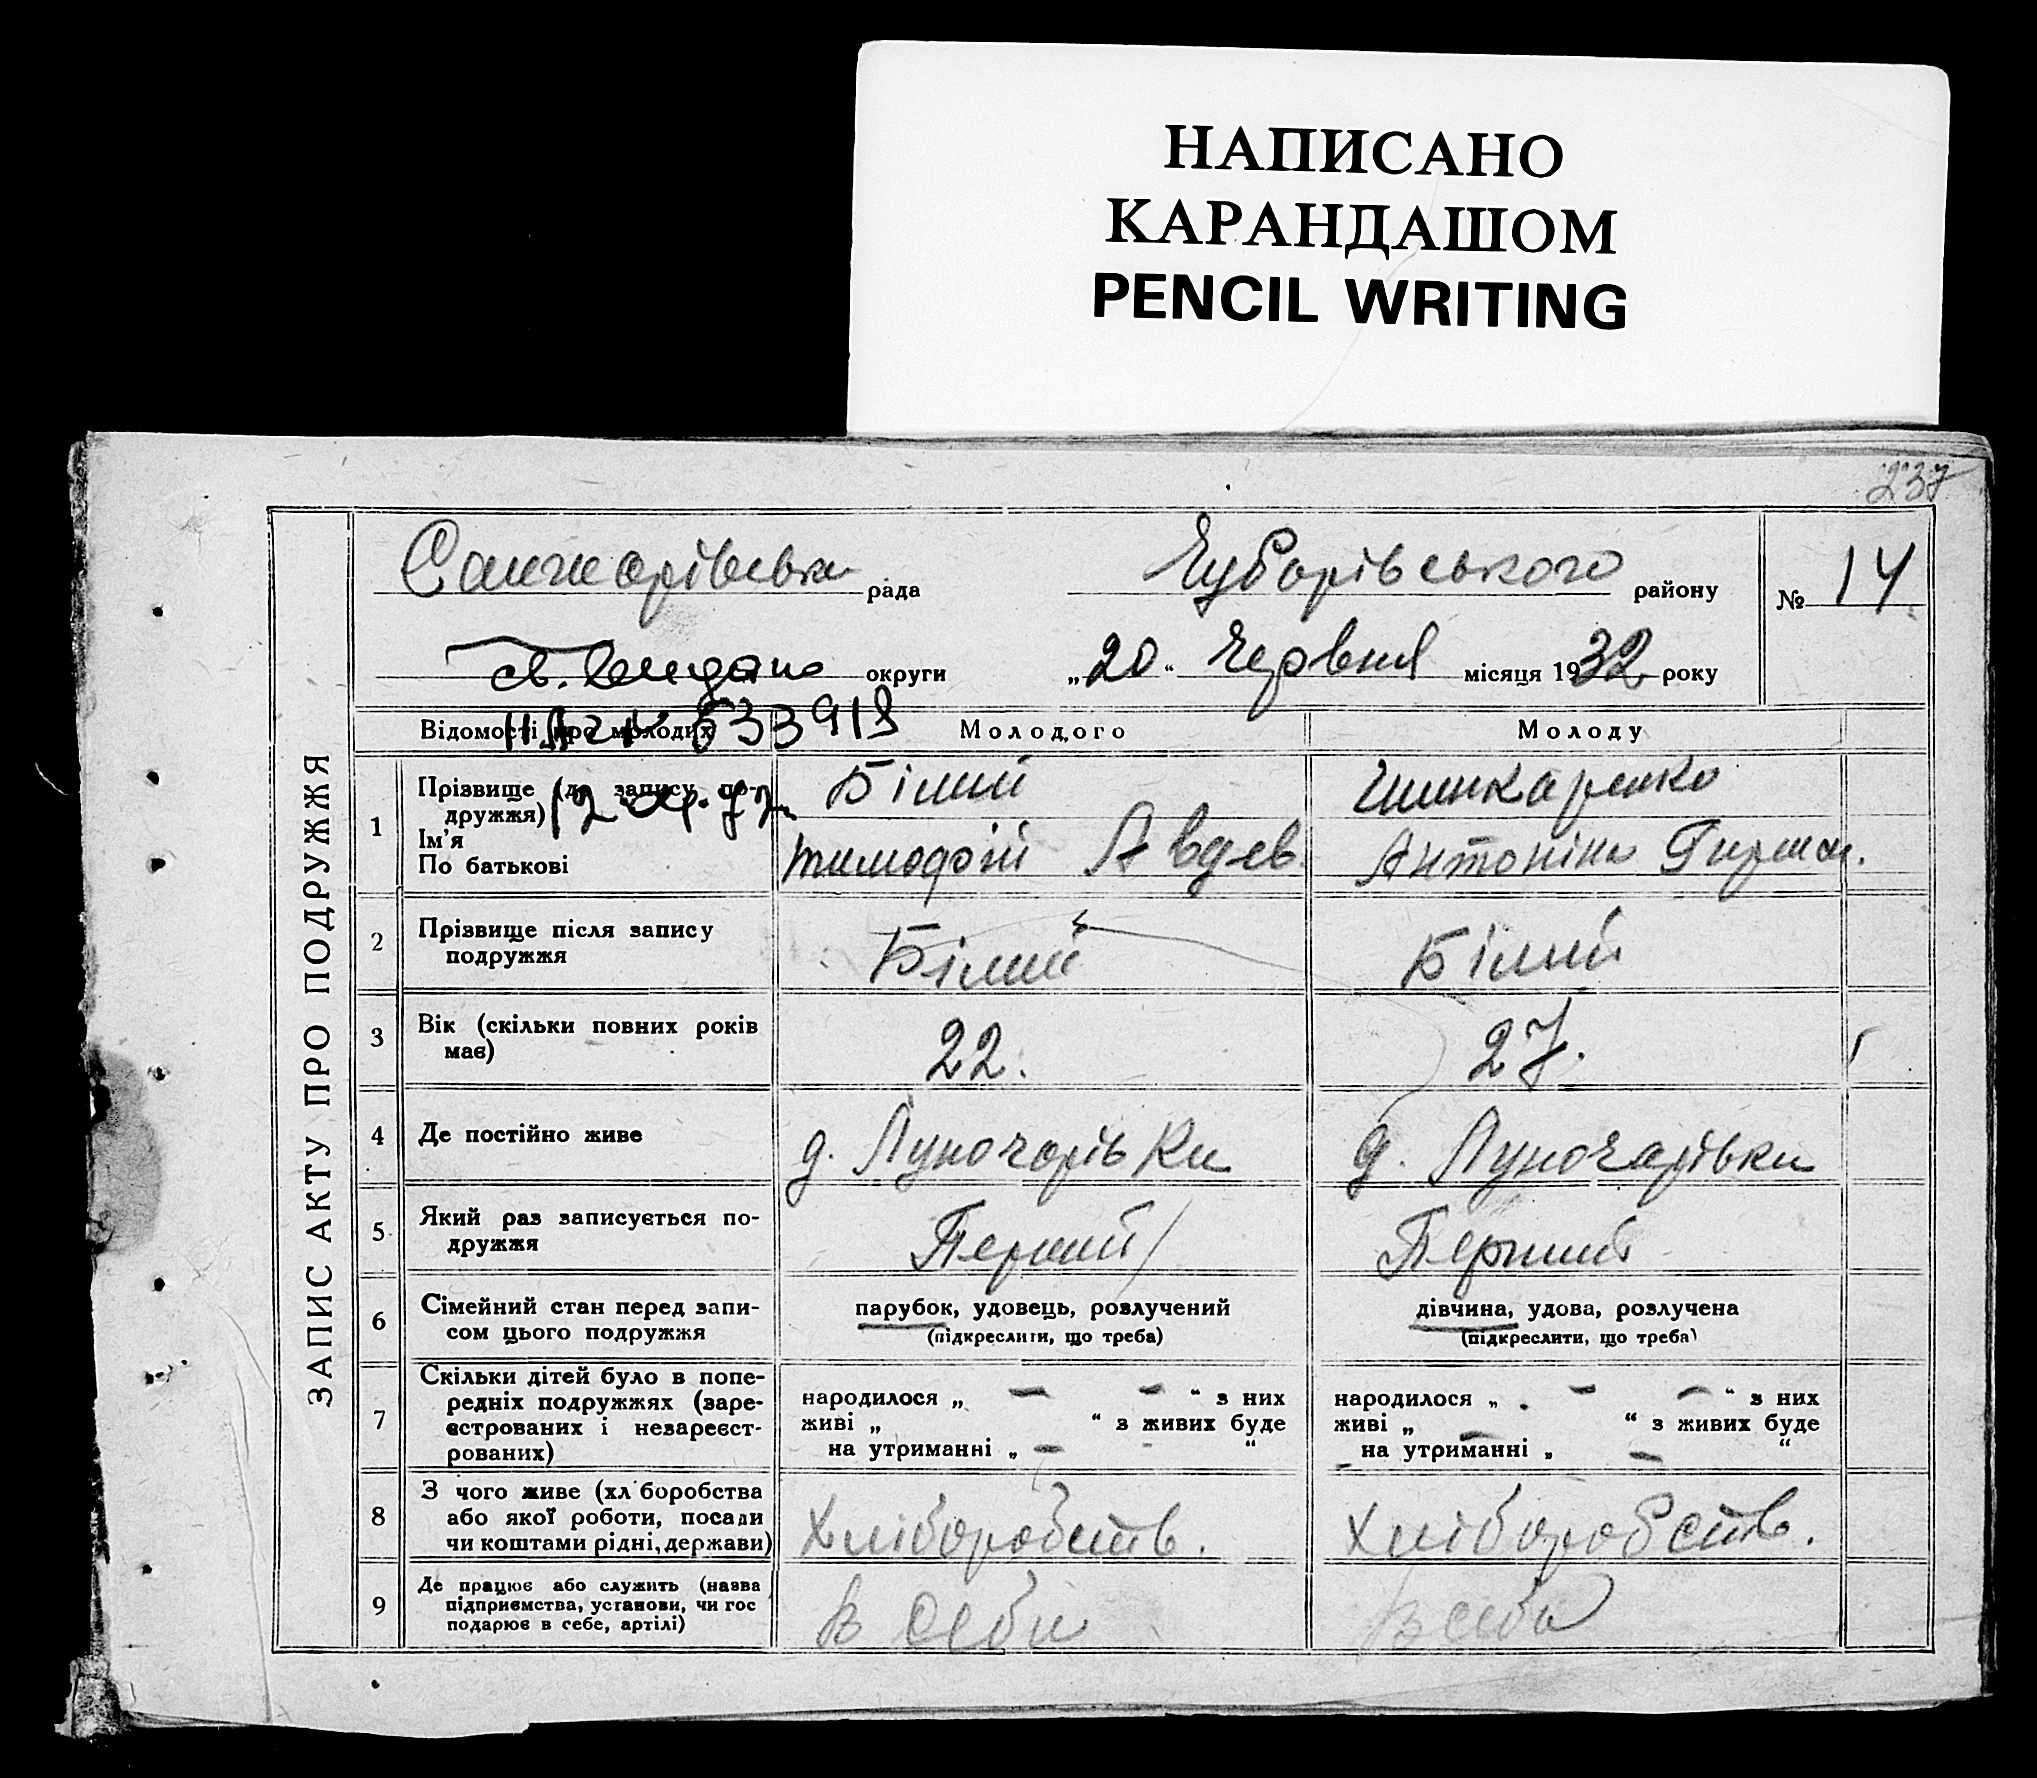 НАПИСАНО
КАРАНДАШОМ
PENCIL WRITING
237
ЗАПИС АКТУ ПРО ПОДРУЖЖЯ
Санжарівська рада Чубарівського району № 14
св. видано округи „20“ Червня місяця 1932 року
Відомості про молодих Молодого Молоду
533918
1 Прізвище (до запису по-
дружжя)
Ім'я
По батькові
Білий Шинкаренко
Тимофій Авдєв. Антоніна
2 Прізвище після запису
подружжя
Білий Білий
3 Вік (скільки повних років
має)
22. 27.
4 Де постійно живе д. Луночарівки д. Луночарівки
5 Який раз записується по-
дружжя
Перший Перший
6 Сімейний стан перед запи-
сом цього подружжя
парубок, удовець, розлучений дівчина, удова, розлучена
(підкреслити, що треба) (підкреслити, що треба)
7 Скільки дітей було в попе-
редніх подружжях (заре-
єстрованих і незареєст-
рованих)
народилося „ — — “ з них народилося „ — — “ з них
живі „ “ з живих буде живі „ — “ з живих буде
на утриманні „ — “ на утриманні „ — “
8 З чого живе (хл боробства
або якої роботи, посади
чи коштами рідні, держави)
Хліборобств. Хліборобств.
9 Де працює або служить (назва
підприємства, установи, чи гос
подарює в себе, артілі)
в себи в себи